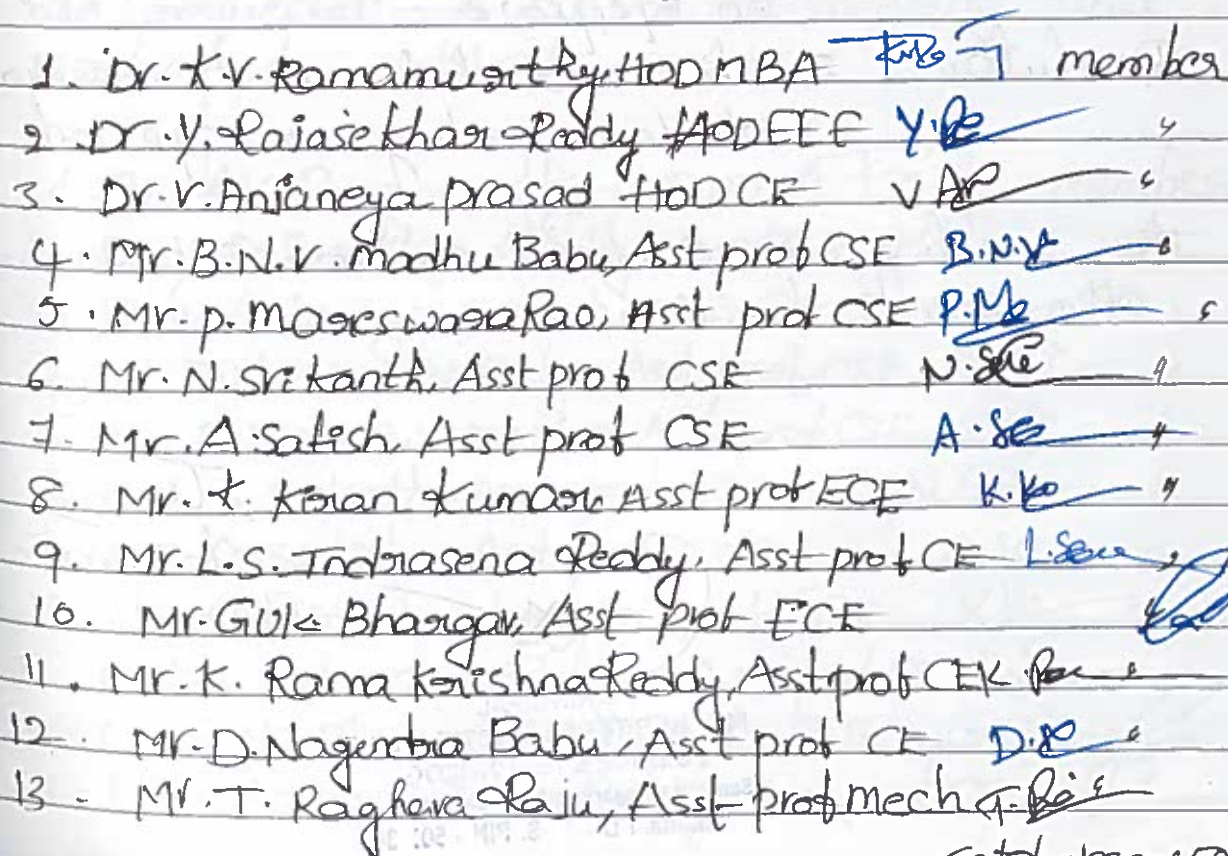 1. Dr. K.V. Ramamurthy, HOD MBA member
2. Dr. Y. Rajasekhar Reddy HOD EEE Y.Re "
3. Dr. V. Anjaneya prasad HOD CE V AP "
4. Mr. B.N.V. Madhu Babu, Asst prof CSE B.N.V "
5. Mr. P. Mareswara Rao, Asst prof CSE P.Me "
6. Mr. N. Srikanth, Asst prof CSE N. "
7. Mr. A. Satish, Asst prof CSE A.Se "
8. Mr. K. Kiran Kumar, Asst prof ECE K.Ko "
9. Mr. L.S. Indrasena Reddy, Asst prof CE L. "
10. Mr. GVK Bhargav, Asst prof ECE "
11. Mr. K. Rama Krishna Reddy, Asst prof CE K. "
12 Mr. D. Nagendra Babu, Asst prof CE D. "
13 - Mr. T. Raghava Raju, Asst prof Mech "